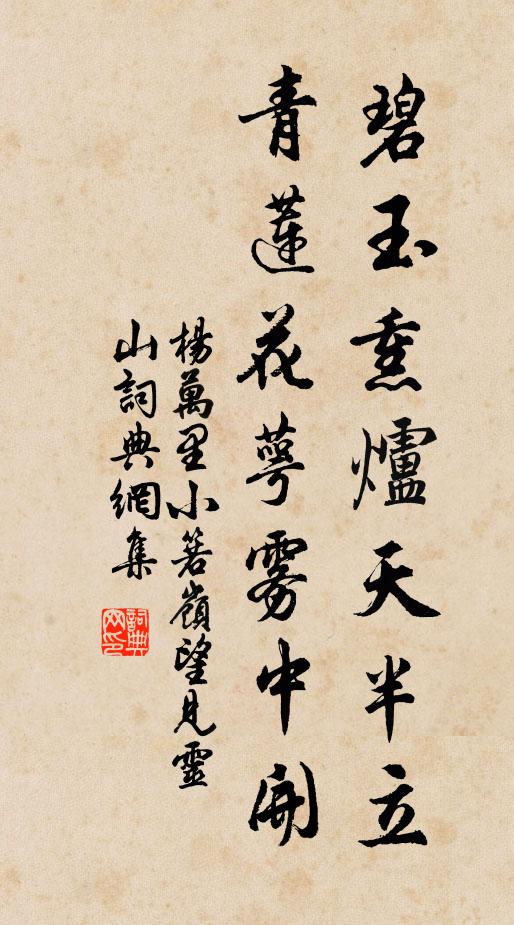 碧玉熏爐天半立
青蓮花萼霧中開
楊萬里小箬嶺望見靈
山詞典網集
詞典網印